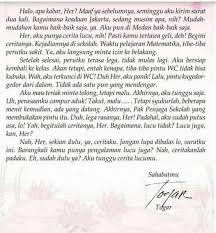 Halo, apa kabar, Her? Maaf ya sebelumnya, seminggu aku kirim surat
dua kali. Bagaimana keadaan Jakarta, sedang musim apa, nih? Mudah-
mudahan kamu baik-baik saja, ya. Aku pun di Medan baik-baik saja.
Her, aku punya cerita lucu, nih! Pasti kamu tertawa geli, deh! Begini
ceritanya. Kejadiannya di sekolah. Waktu pelajaran Matematika, tiba-tiba
perutku sakit. Ya, aku langsung minta izin ke belakang.
Setelah selesai, perutku terasa lega, tidak mulas lagi. Aku bersiap
kembali ke kelas. Akan tetapi, entah kenapa, tiba-tiba pintu WC tidak bisa
kubuka. Wah, aku terkunci di WC! Duh Her, aku panik! Lalu, pintu kugedor-
gedor dari dalam. Tidak ada satu pun yang mendengar.
Aku mau teriak minta tolong, tetapi malu. Akhirnya, aku tunggu saja.
Uh, perasaanku campur aduk! Takut, malu.... Tetapi syukurlah, beberapa
menit kemudian, ada yang datang. Akhirnya, Pak Penjaga Sekolah yang
membukakan pintu itu. Duh, lega rasanya, Her! Padahal, aku sudah putus
asa, lo! Yah, begitulah ceritanya, Her. Bagaimana, lucu tidak? Lucu juga,
kan, Her?
Nah, Her, sekian dulu, ya, ceritaku. Jangan lupa dibalas lo, suratku
ini. Barangkali kamu punya pengalaman lucu juga? Nah, ceritakanlah
padaku. Eh, sudah dulu ya? Aku tunggu cerita lucumu.
Sahabatmu
Togar
Togar